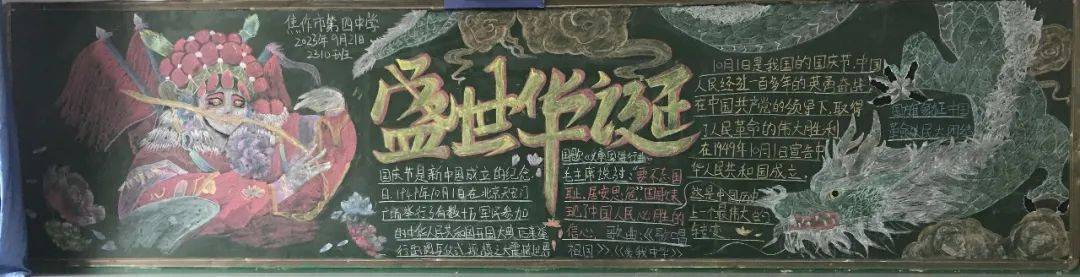 焦作市第四中学
2023年9月21日
2310班
盛世华诞
国庆节是新中国成立的纪念
日,1949年10月1日在北京天安门
广场举行了有数十万军民参加
的中华人民共和国开国大典
国歌《义勇军进行曲》
毛主席说过:"要不忘国
耻,居安思危"国歌表
现了中国人民必胜的
信心、歌曲《歌唱
祖国》
10月1日是我国的国庆节,中国
人民经过一百多年的英勇奋战
在中国共产党的领导下,取得
了人民革命的伟大胜利
在1949年10月1日宣告中
华人民共和国成立,
这是中国历史
上一个最伟大的
转变